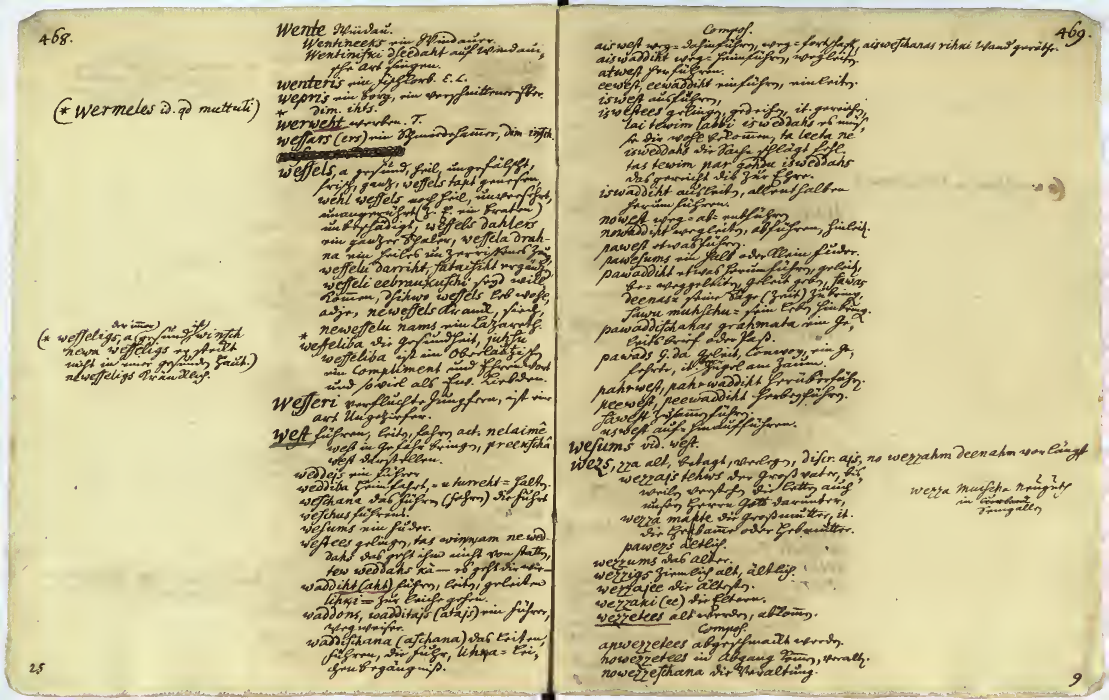 468.
Wente Windau.
Wentineeks ein Windauer.
Wentiniski dseedaht auf Windau,
sche Art singen.
wenteris ein
wepris ein Borg, ein verschnittener Eber.
dim. ihts.
(* wermeles id. qd muttuli)
* werweht werben. T.
wessars (ers) ein Schmiedehammer, dim insch.
wessels, a gesund, heil, ungefälscht,
frisch, ganz, wessels tapt genesen,
wehl wessels noch heil, unversehrt,
unangerührt (z. E. ein Braten)
unbeschädigt, wessels dahlers
ein ganzer Thaler, wessela drah-
na ein heiles unzerrissenes Zeug,
wesselu darriht, sataisiht ergänzen,
wesseli eebraukuschi seyd will
kommen, dsihwo wessels leb wohl,
adje, newessels krank, siech,
newesselu nams ein Lazareth.
* wesseliba die Gesundheit, juhsu
wesseliba ist ein Oberlauzisch
ein Compliment und Ehrenwort
und so viel als Ew. Liebden.
(* wesseligs, a gesund, winsch
newa wesseligs er steckt
nicht in einer gesunden Haut.)
newesseligs kränklich.
Wesseri verfluchte Jungfern, ist eine
art Ungeziefer.
West führen, leiten, fahren act. nelaimê
west in Gefahr bringen, preekschâ
west darstellen.
weddejs ein führer
weddiba Heimfahrt, = u turreht = halten.
weschana das führen (fahren) die führe
weschus führend.
wesums ein fuder.
westees gelingen, tas winnam ne wed-
dahs das geht ihm nicht von statten,
tew weddahs kâ — es geht dir wie —
waddiht (aht) führen, leiten, geleiten
lihki = zur Leiche gehen.
waddons, wadditajs (atajs) ein führer,
wegweiser.
waddischana (aschana) das Leiten,
führen, die fuhr, lihka = Lei,
chen begängniß.
25
469.
Compos.
aiswest weg = dahinführen, weg = fortschaffen, aisweschanas rihki Wand geräthe.
aiswaddiht weg = heimführen, wegleiten.
atwest herführen.
eewest, eewaddiht einführen, einleiten.
iswest ausführen,
iswestees gelingen, gedeihen, it. gereichen,
lai tewim labbi isweddahs es müs,
se dir wohl bekommen, ta leeta ne
isweddahs die Sache schlägt fehl.
tas tewim par gohdu isweddahs
das gereicht dir zur Ehre.
iswaddiht ausleiten, allenthalben
herum führen.
nowest weg = ab = entführen
nowaddiht wegleiten, abführen, hinleit.
pawest etwas führen.
pawesums ein halb oder klein fuder.
pawaddiht etwas herum führen, geleiten,
be = weggeleiten, Geleit geben, sawas
deenas = seine Tage (Zeit) zubring.
sawu muhschu = sein Leben hinbring.
pawaddischanas grahmata ein Ge,
leits brief oder Paß.
pawads g. da Geleit, Convoy, ein Ge,
fehrte, it. Zügel am Zaum.
pahrwest, pahrwaddiht herüberführen.
peewest, peewaddiht herbeyführen.
sawest zusammführen.
uswest auf = hinaufführen.
wesums vid. west.
wezs, zza alt, betagt, verlegen, discr. ajs, no wezzahm deenahm vor längst
wezzajs tehws der Großvater, bis,
weilen verstehen die Letten auch
unsern Herrn Gott darunter,
wezza mahte die Großmutter, it.
die Hebamme oder Hebmutter.
pawezs ältlich.
wezzums das alter.
wezzigs ziemlich alt, ältlich.
wezzajee die ältesten.
wezzaki (ee) die Eltern.
wezzetees alt werden, abkommen.
Compos.
apwezzetees abgeschmackt werden.
nowezzetees in Abgang kommen, veralten.
nowezzeschana die Veraltung.
wezza
in
Semgallen
9